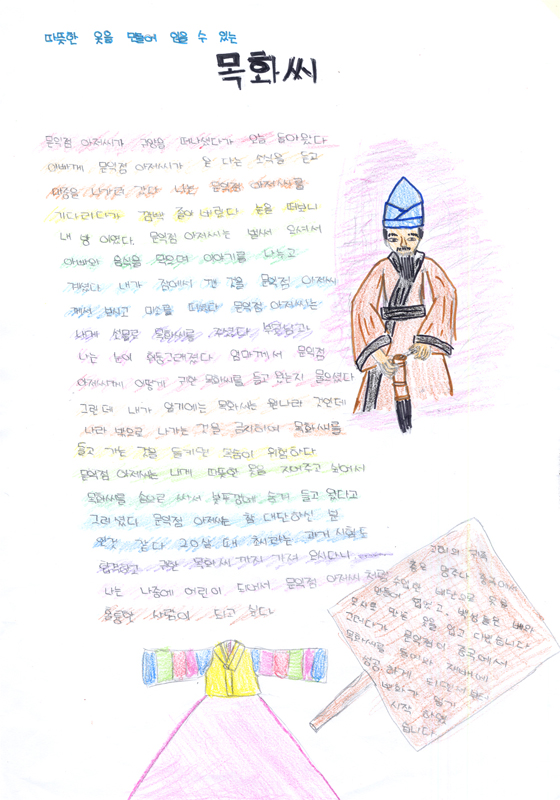 따뜻한 옷을 만들어 입을 수 있는
목화씨
문익점 아저씨가 고려를 떠나셨다가 오늘 돌아왔다
아빠께 문익점 아저씨가 온 다는 소식을 듣고
마중을 나가려 갔다 나는 문익점 아저씨를
기다리다가 깜빡 졸아 버렸다 눈을 떠보니
내 방 이었다. 문익점 아저씨는 벌써 오셔서
아빠와 음식을 먹으며 이야기를 나누고
계셨다. 내가 잠에서 깬 것을 문익점 아저씨
께서 보시고 미소를 띄웠다 문익점 아저씨는
내게 선물로 목화씨를 주셨다
나는 눈이 휘둥그레졌다 엄마께서 문익점
아저씨께 어떻게 귀한 목화씨를 들고 왔는지 물으셨다
그런데 내가 알기에는 목화씨는 원나라 것인데
나라 밖으로 나가는 것을 금지하여 목화씨를
들고 가는 것을 들키면 목숨이 위험하다
문익점 아저씨는 내게 따뜻한 옷을 지어주고 싶어서
목화씨를 솜으로 싸서 붓뚜껑에 숨겨 들고 왔다고
그러셨다 문익점 아저씨는 참 대단하신 분
인것 같다 20살 때 과거 시험도
합격하고 귀한 목화씨 까지 가져 오시다니
나는 나중에 어른이 되어서 문익점 아저씨 처럼
훌륭한 사람이 되고 싶다
고려의 귀족
들은 명주나 중국에서
수입한 비단으로 옷을
만들어 입었고, 백성들은 삼베와
모시로 만든 옷을 입고 다녔습니다
그러다가 문익점이 중국에서
목화씨를 들여와 재배에
성공 하게
시작 하였
습니다